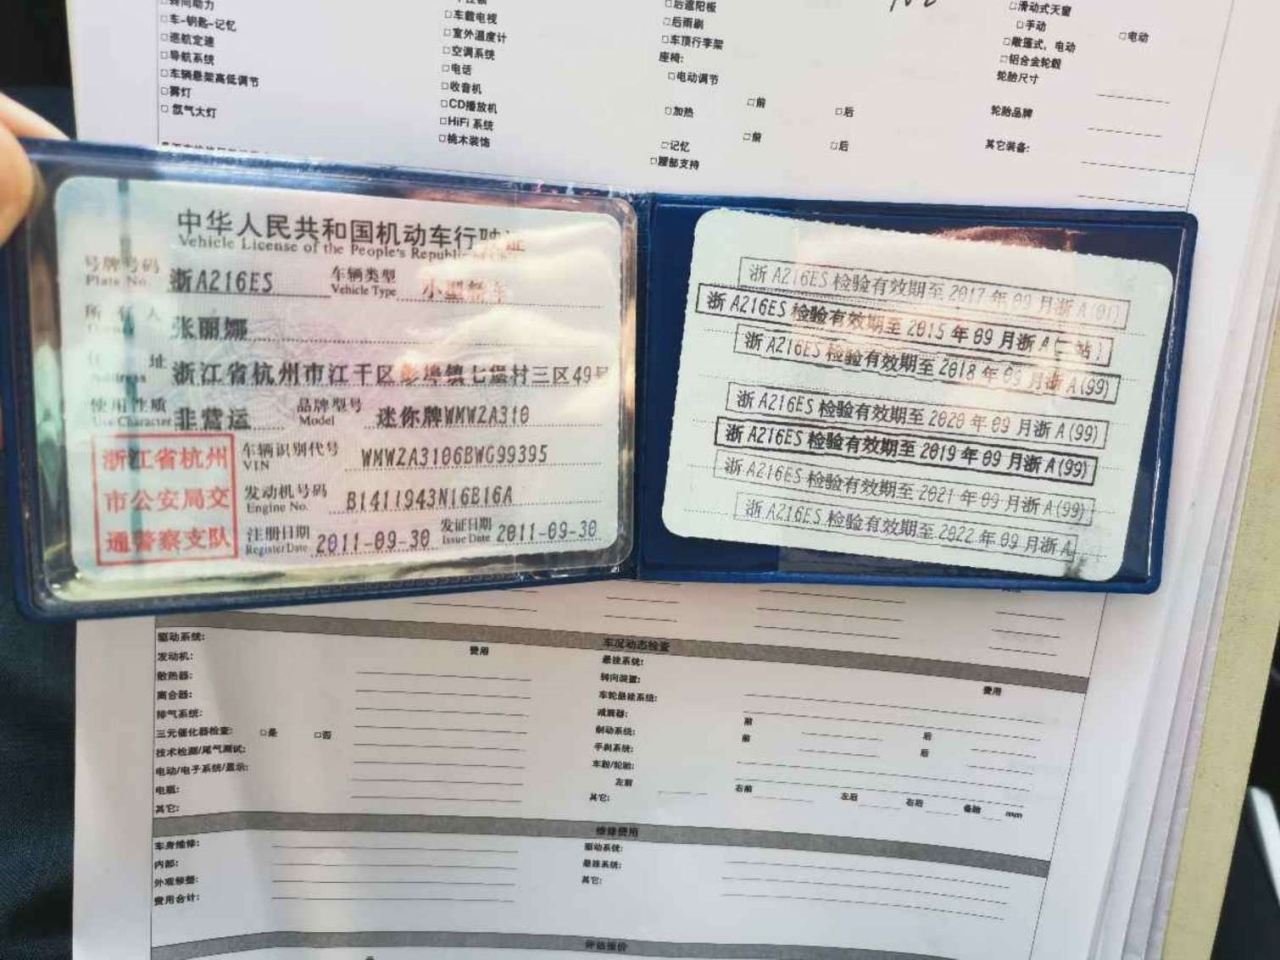 转向助力
□车-钥匙-记忆
□巡航定速
□导航系统
□车辆悬架高低调节
□雾灯
□氙气大灯
□车载电视
□室外温度计
□空调系统
□电话
□收音机
□CD播放机
□HiFi 系统
□桃木装饰
□后遮阳板
□后雨刷
□车顶行李架
座椅:
□电动调节
□加热 □前 □后
□记忆 □前 □后
□腰部支持
□滑动式天窗
□手动 □电动
□敞篷式, 电动
□铝合金轮毂
轮胎尺寸
轮胎品牌
其它装备:
中华人民共和国机动车行驶证
Vehicle License of the People's Republic
号牌号码 浙A216ES 车辆类型 小型轿车
Plate No. Vehicle Type
所有人 张丽娜
住址 浙江省杭州市江干区彭埠镇七堡村三区49号
Address
使用性质 非营运 品牌型号 迷你牌WMWZA310
Use Character Model
浙江省杭州
市公安局交
通警察支队
车辆识别代号 WMWZA3106BWG99395
VIN
发动机号码 B1411943N16B16A
Engine No.
注册日期 2011-09-30 发证日期 2011-09-30
Register Date Issue Date
浙A216ES 检验有效期至 2017 年 09 月浙A(01)
浙A216ES 检验有效期至 2015 年 09 月浙A(二站)
浙A216ES 检验有效期至 2018 年 09 月浙A(99)
浙A216ES 检验有效期至 2020 年 09 月浙A(99)
浙A216ES 检验有效期至 2019 年 09 月浙A(99)
浙A216ES 检验有效期至 2021 年 09 月浙A(99)
浙A216ES 检验有效期至 2022 年 09 月浙A
车况动态检查
驱动系统: 费用
发动机:
散热器:
离合器:
排气系统:
三元催化器检查: □是 □否
技术检测/尾气测试:
电动/电子系统/显示:
电瓶:
其它:
悬挂系统: 费用
转向装置:
车轮悬挂系统:
减震器: 前 后
制动系统: 前 后
手刹系统:
车胎/轮胎:
左前 右前 左后 右后 备胎 mm
其它:
维修费用
车身维修:
内部:
外观修整:
费用合计:
驱动系统:
悬挂系统:
其它:
评估报价